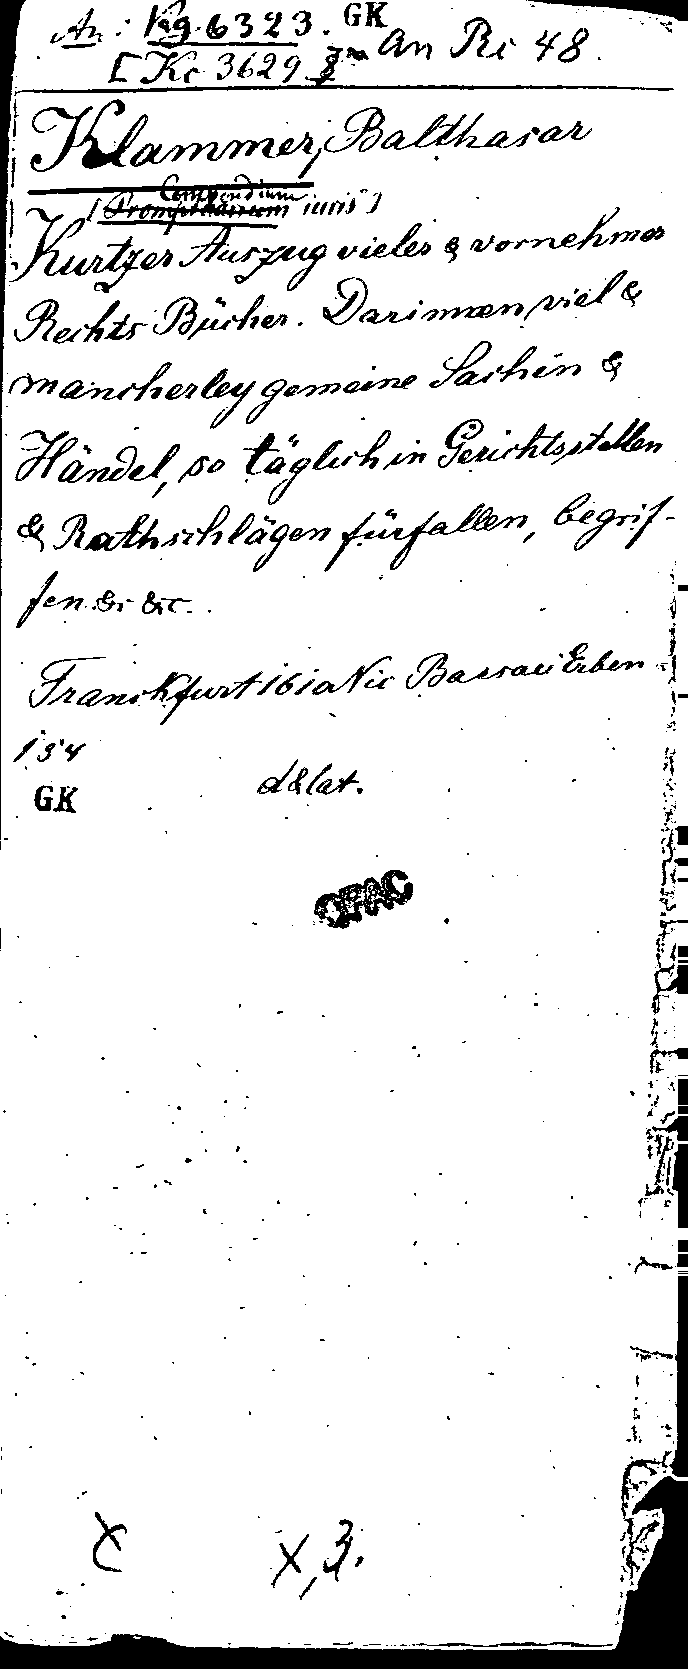 An: Kg. 6323. GK
[Kc 3629 An Ri 48.
Klammer, Balthasar
Compendium
[Promptuarium iuris]
Kurtzer Auszug vieler & vornehmer
Rechts Bücher. Darinnen, viel &
mancherley gemeine Sachen &
Händel, so täglich in Gerichtsstellen
& Rathschlägen fürfallen, begrif-
fen &c &c.
Franckfurt 1610 Nic Bassaei Erben
154
GK d & lat.
OPAC
X X, 3.